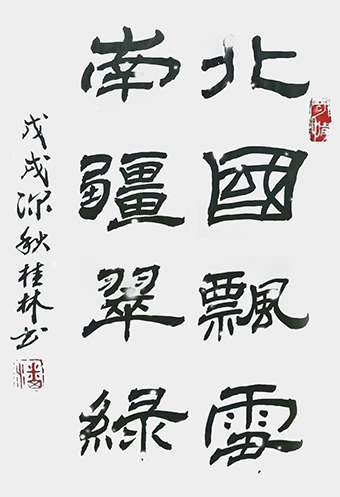 北國飄雪
南疆翠緑
戊戌深秋桂林书